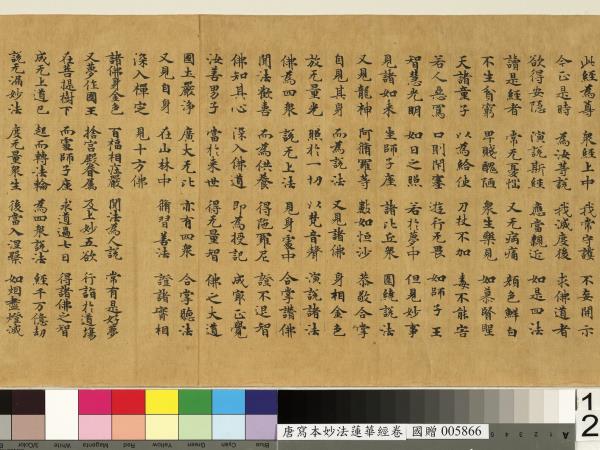 此經為尊 衆經上中 我常守護 不妄開示
今正是時 為汝等說 我滅度後 求佛道者
欲得安隱 演說斯經 應當親近 如是四法
讀是經者 常无憂惱 又无病痛 顏色鮮白
不生貧窮 卑賤醜陋 衆生樂見 如慕賢聖
天諸童子 以為給使 刀杖不加 毒不能害
若人惡罵 口則閉塞 遊行无畏 如師子王
智慧光明 如日之照 若於夢中 但見妙事
見諸如來 坐師子座 諸比丘衆 圍繞說法
又見龍神 阿脩羅等 數如恒沙 恭敬合掌
自見其身 而為說法 又見諸佛 身相金色
放无量光 照於一切 以梵音聲 演說諸法
佛為四衆 說无上法 見身處中 合掌讚佛
聞法歡喜 而為供養 得陀羅尼 證不退智
佛知其心 深入佛道 即為授記 成冣正覺
汝善男子 當於來世 得无量智 佛之大道
國土嚴淨 廣大无比 亦有四衆 合掌聽法
又見自身 在山林中 脩習善法 證諸實相
深入禪定 見十方佛
諸佛身金色 百福相莊嚴 聞法為人說 常有是好夢
又夢作國王 捨宮殿眷屬 及上妙五欲 行詣於道場
在菩提樹下 而處師子座 求道過七日 得諸佛之智
成无上道已 起而轉法輪 為四衆說法 經千万億劫
說无漏妙法 度无量衆生 後當入涅槃 如烟盡燈滅
3/Color White Magenta Red Yellow Green Cyan Blue
唐寫本妙法蓮華經卷 國贈 005866
A
12